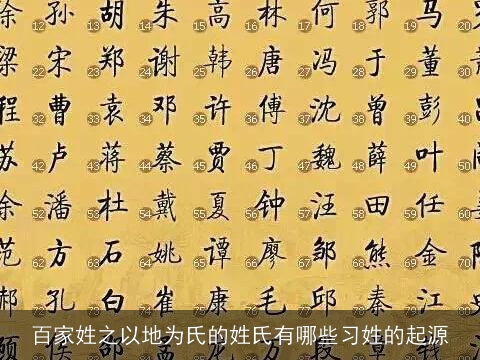 徐 12 孙 13 胡 14 朱 15 高 16 林 17 何 18 郭 19 马 20
梁 22 宋 23 郑 24 谢 25 韩 26 唐 27 冯 28 于 29 董 30
程 32 曹 33 袁 34 邓 35 许 36 傅 37 沈 38 曾 39 彭 40
苏 42 卢 43 蒋 44 蔡 45 贾 46 丁 47 魏 48 薛 49 叶 50
余 52 潘 53 杜 54 戴 55 夏 56 钟 57 汪 58 田 59 任 60
范 62 方 63 石 64 姚 65 谭 66 廖 67 邹 68 熊 69 金 70
郝 72 孔 73 白 74 崔 75 康 76 毛 77 邱 78 秦 79 江 80
百家姓之以地为氏的姓氏有哪些习姓的起源